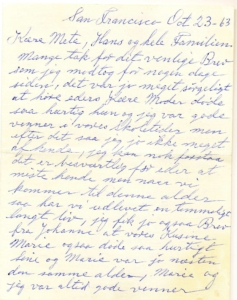 San Francisco Oct. 23-63
Kære Mete, Hans og hele Familien.
Mange tak for det venlige Brev
som jeg modtog for nogen dage
siden, det var jo meget sørgeligt
at høre eders Kære Moder døde
saa hurtig hun og jeg var gode
venner i vores Skoletider men
efter det saa jeg jo ikke meget
at hende, jeg kan nok forstaa
det er besværligt for eder at
miste hende men naar vi
kommer til denne alder
saa har vi udlevet en temmelig
langt liv, jeg fik jo ogsaa Brev
fra Johanne at vores Kusine
Marie ogsaa døde saa hurtigt
hun og Marie var jo næsten
den samme alder, Marie og
jeg var altid gode venner